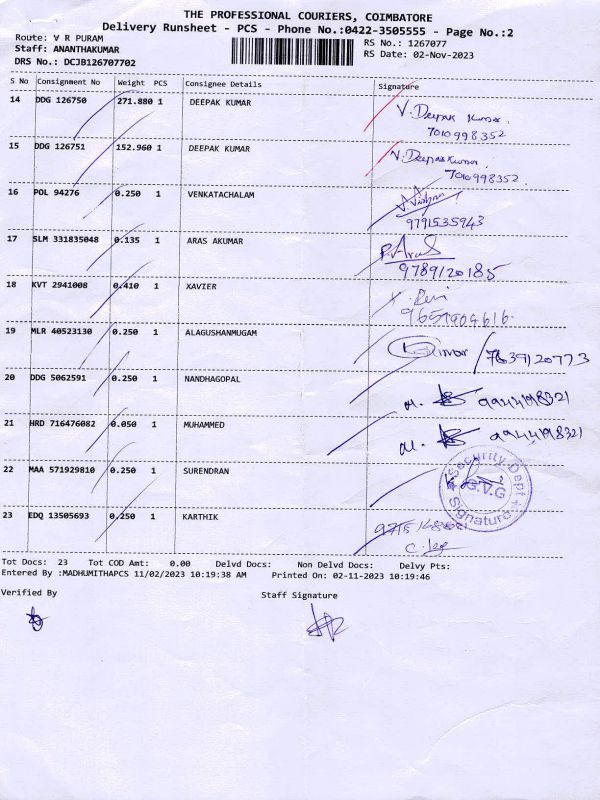 THE PROFESSIONAL COURIERS, COIMBATORE
Delivery Runsheet - PCS - Phone No.:0422-3505555 - Page No.:2
Route: V R PURAM
RS No.: 1267077
Staff: ANANTHAKUMAR
RS Date: 02-Nov-2023
DRS No.: DCJB126707702
S No Consignment No Weight PCS Consignee Details Signature
14 DDG 126750 271.880 1 DEEPAK KUMAR V. Deepak Kumar.
7010998352
15 DDG 126751 152.960 1 DEEPAK KUMAR V. Deepak Kumar
7010998352
16 POL 94276 0.250 1 VENKATACHALAM
9791535943
17 SLM 331835048 0.135 1 ARAS AKUMAR P. Aras
9789120185
18 KVT 2941008 0.410 1 XAVIER
9659904616
19 MLR 40523130 0.250 1 ALAGUSHANMUGAM Kumar / 7639120773
20 DDG 5062591 0.250 1 NANDHAGOPAL M. 9944198321
21 HRD 716476082 0.050 1 MUHAMMED M. 9944198321
22 MAA 571929810 0.250 1 SURENDRAN
Security Dept
G.V.G
Signature
23 EDQ 13505693 0.250 1 KARTHIK
Tot Docs: 23 Tot COD Amt: 0.00 Delvd Docs: Non Delvd Docs: Delvy Pts:
Entered By :MADHUMITHAPCS 11/02/2023 10:19:38 AM Printed On: 02-11-2023 10:19:46
Verified By Staff Signature